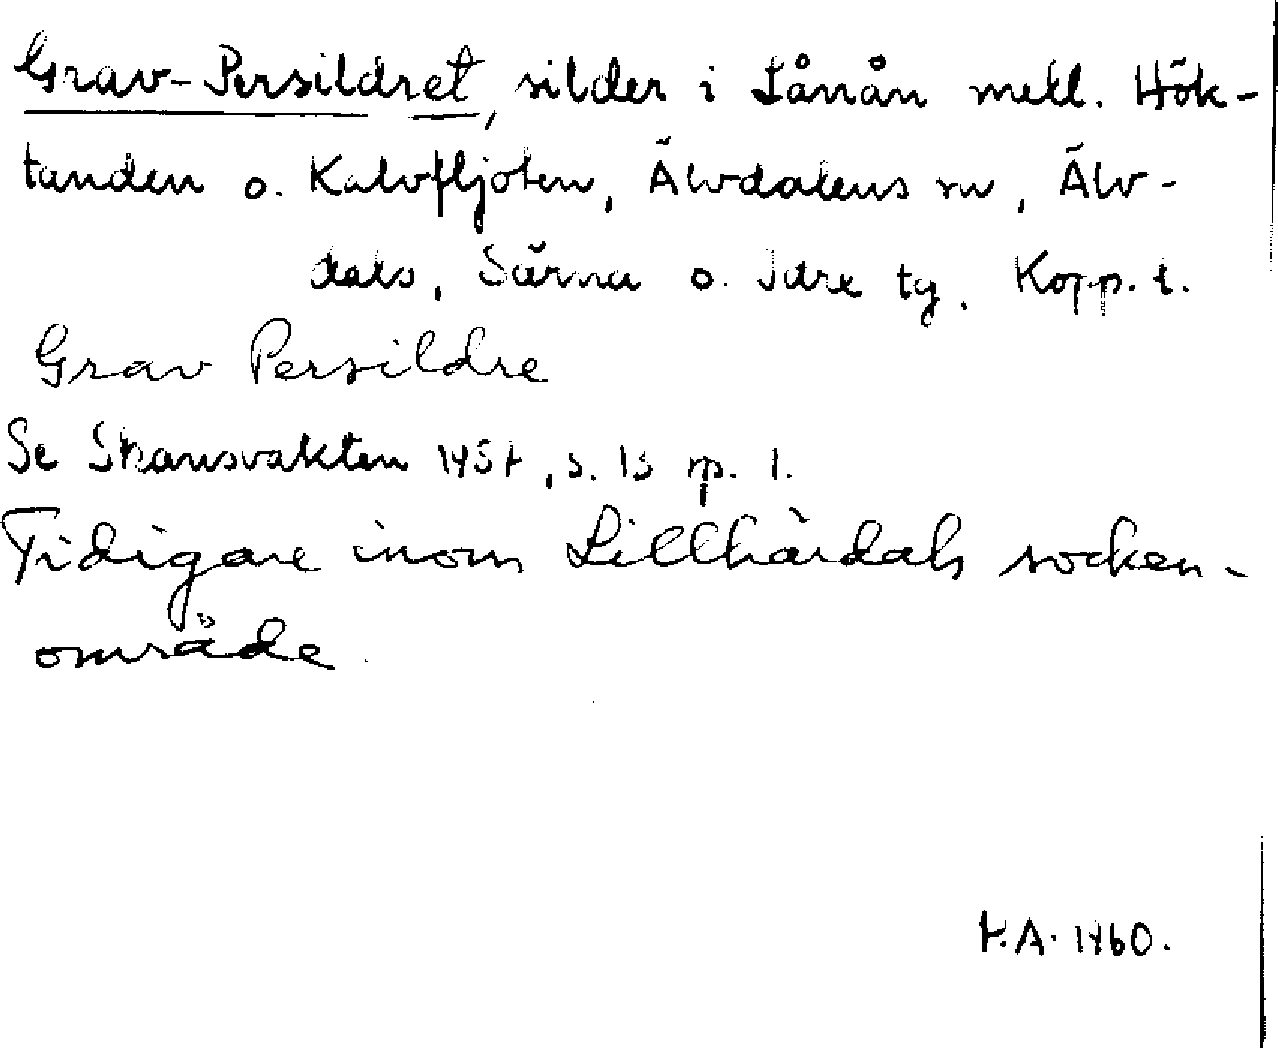 Grav-Persildret, silder i Lånån mell. Hök-
tanden o. Kalvfljoten, Älvdalens sn, Älv-
dals, Särna o. Idre tg, Kopp. l.
Grav Persildre
Se Skansvakten 1957, s. 15 sp. 1.
Tidigare inom Lillhärdals socken-
område.
F.A. 1960.